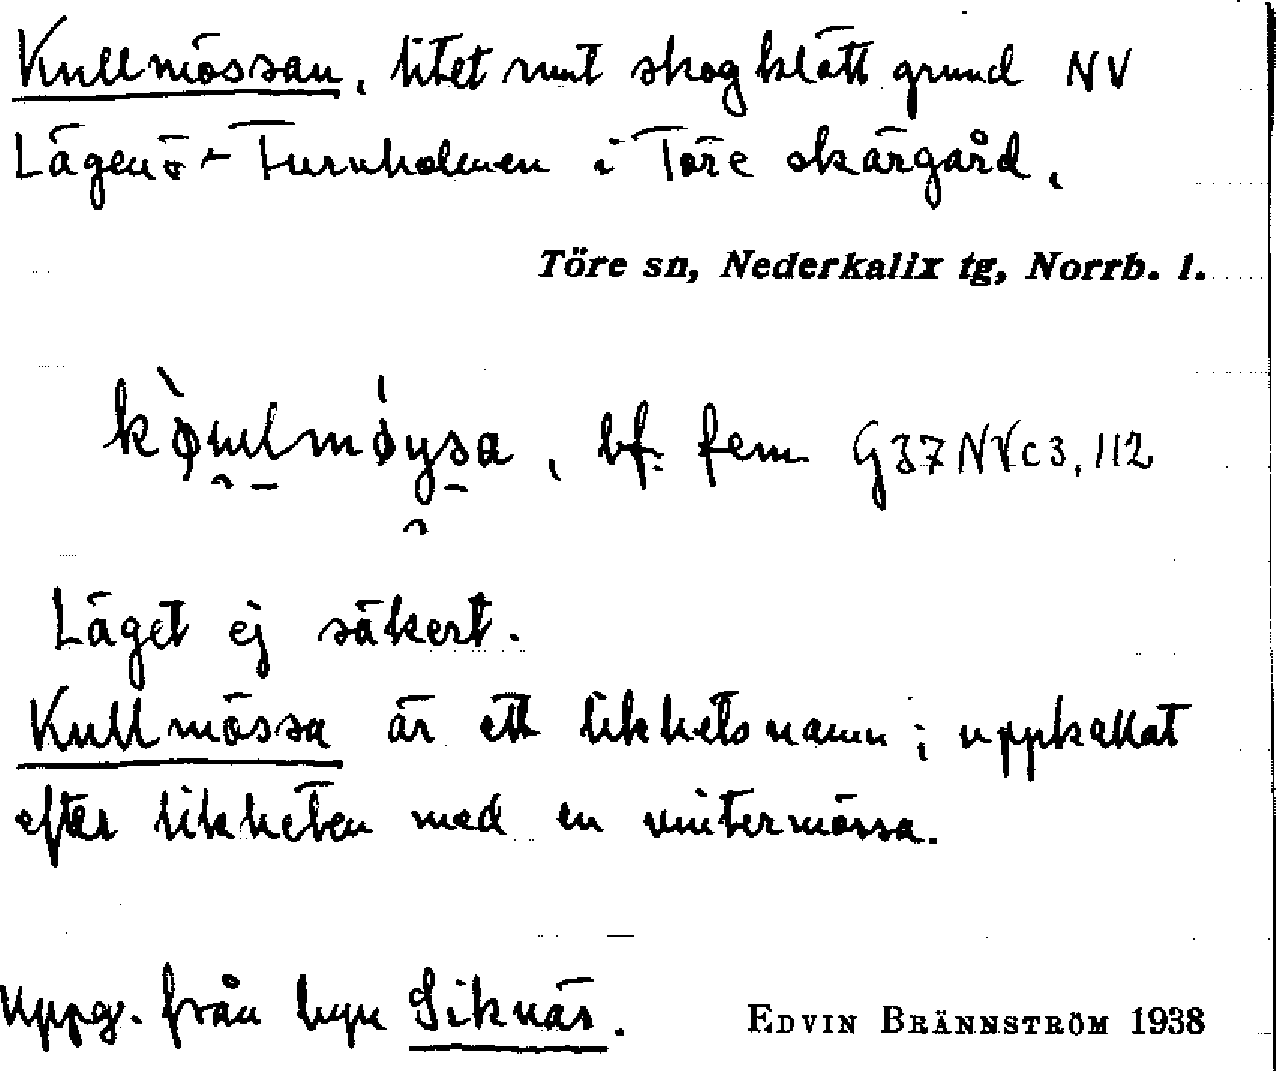 Kullmössan, litet runt skogklätt grund NV
Lägenö-Furuholmen i Töre skärgård.
Töre sn, Nederkalix tg, Norrb. l.
bf. fem G37NVc3,112
Läget ej säkert.
Kullmössa är ett likhetsnamn; uppkallat
efter likheten med en vintermössa.
Uppg. från byn Siknäs.
EDVIN BRÄNNSTRÖM 1938